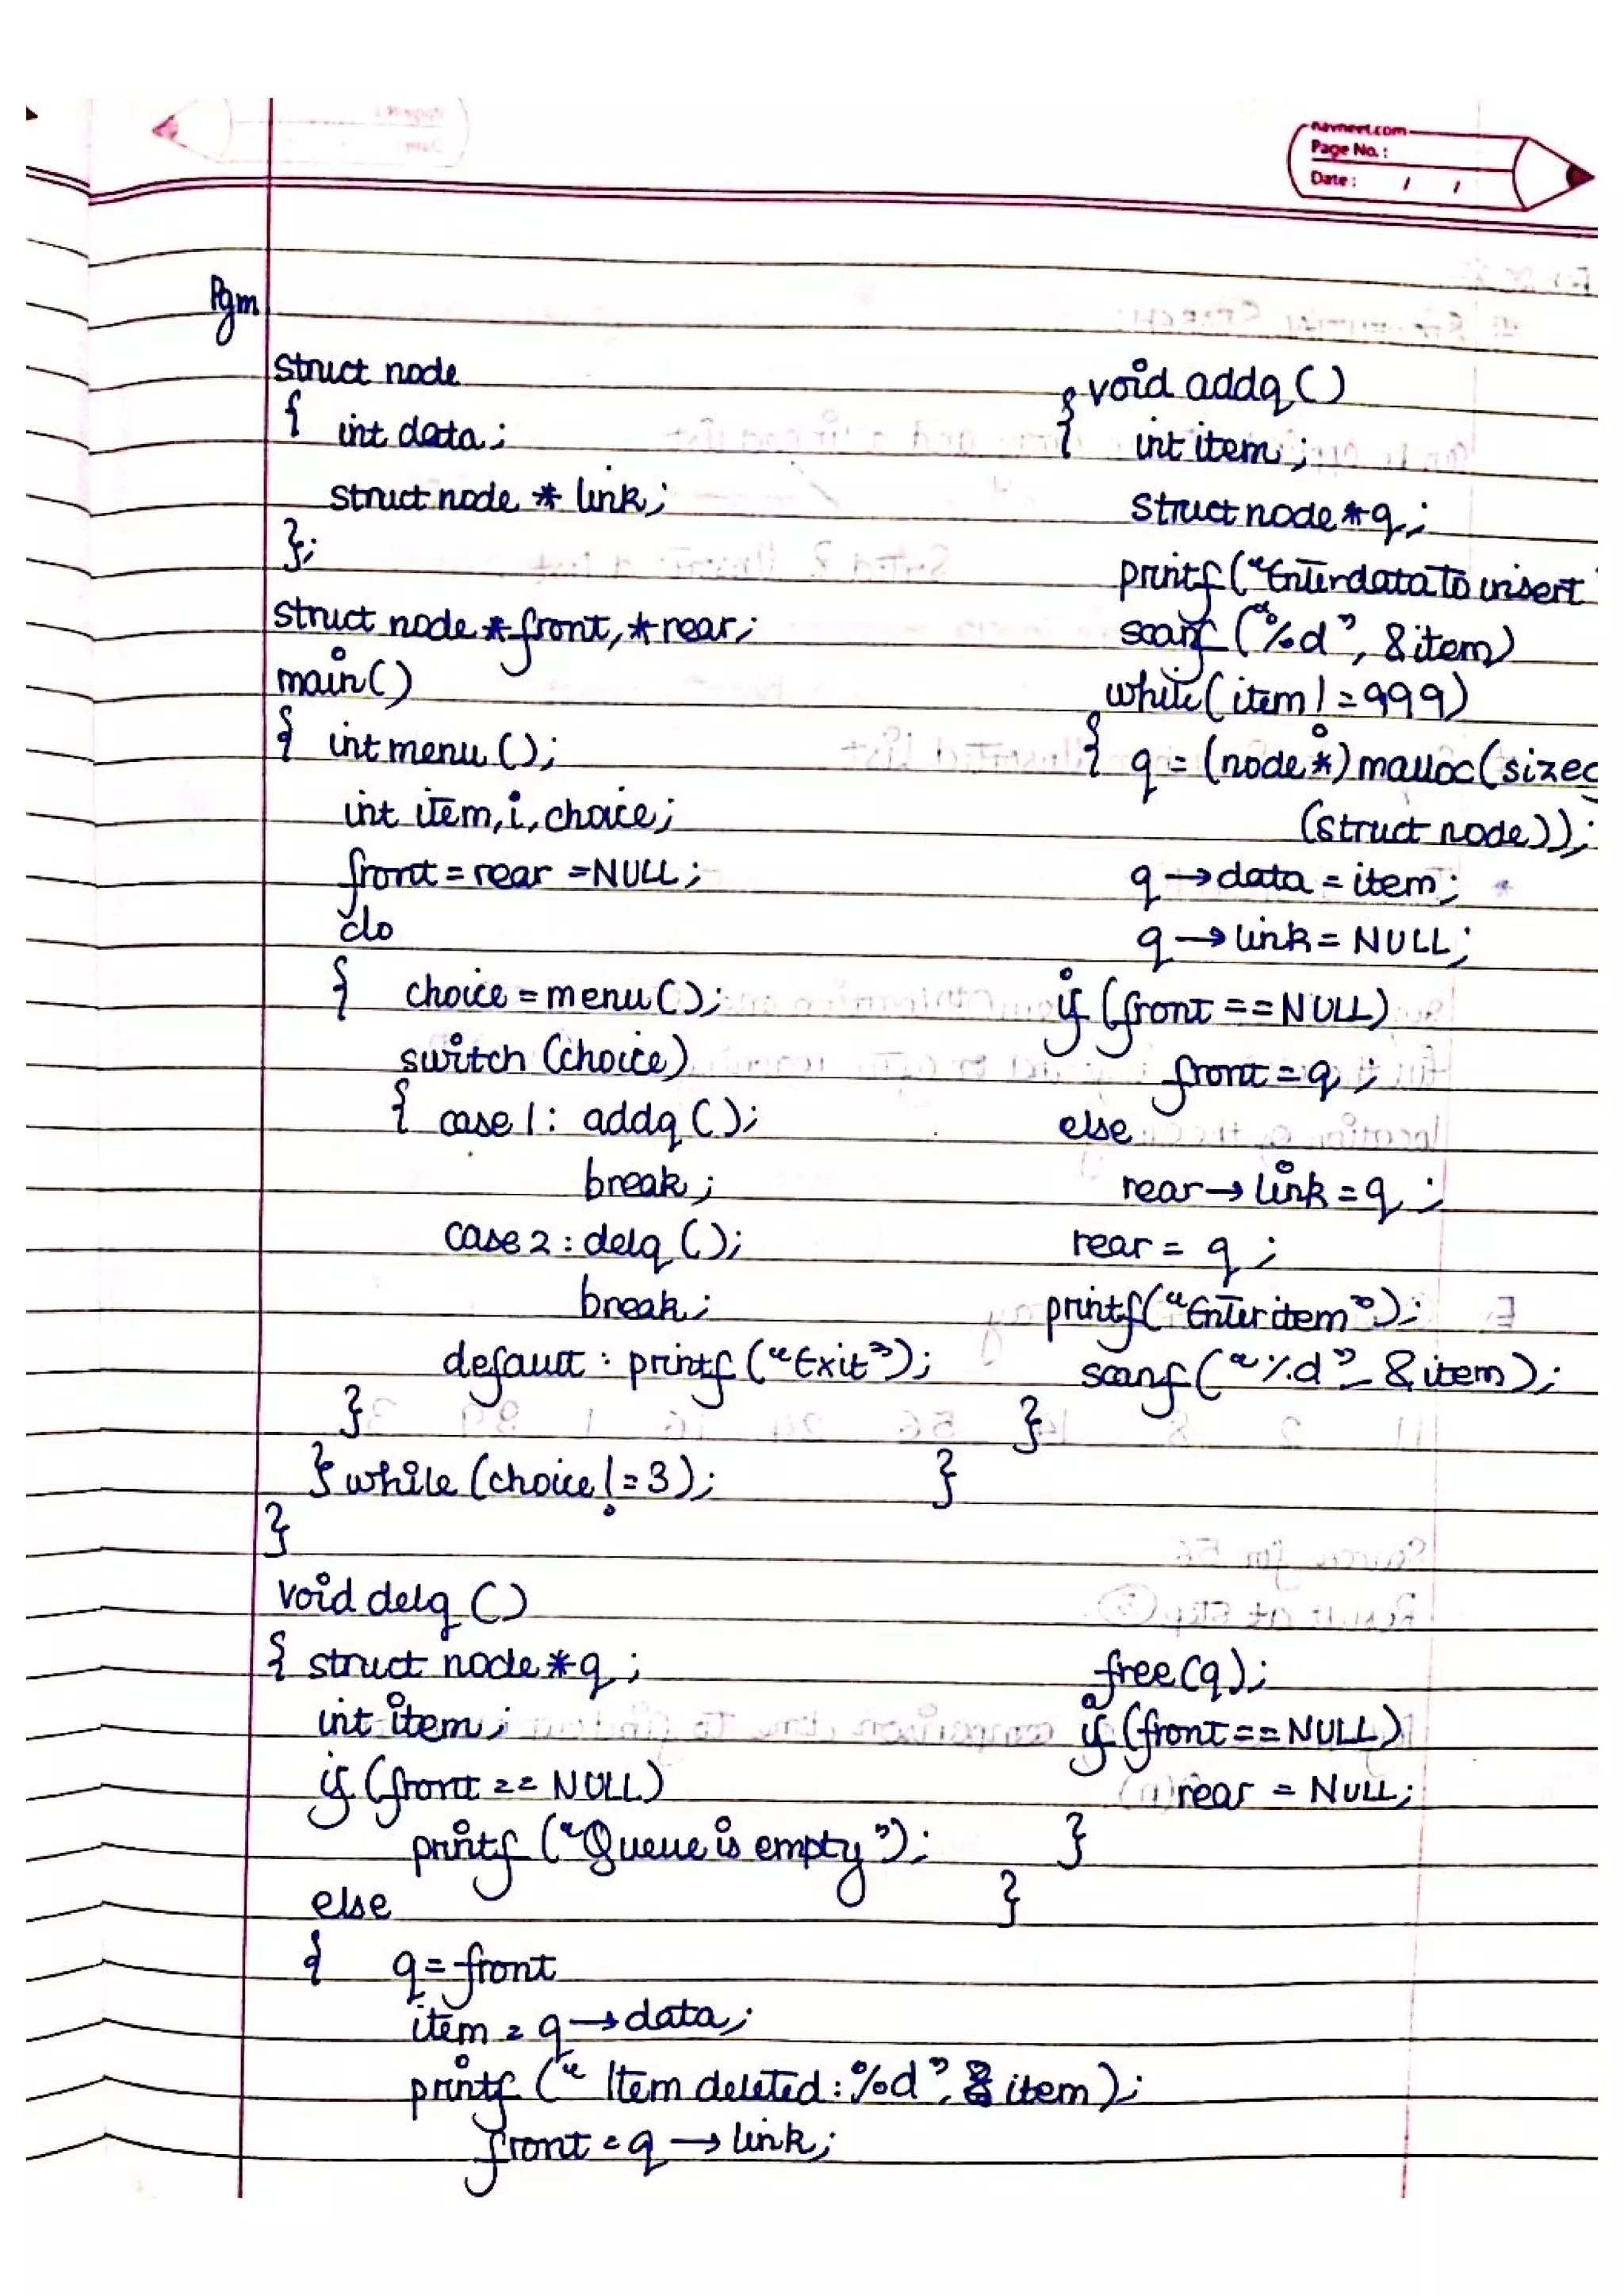 navneet.com
Page No. :
Date : / /
Pgm
struct node
{ int data;
struct node * link;
};
struct node *front, *rear;
main()
{ int menu ();
int item, i, choice;
front = rear = NULL;
do
{ choice = menu ();
switch (choice)
{ case 1: addq ();
break;
case 2: delq ();
break;
default: printf ("Exit");
}
} while (choice != 3);
}
void addq ()
{ int item;
struct node *q;
printf ("Enter data to insert"
scanf ("%d", &item)
while (item != 999)
{ q = (node *) malloc (sizeo
(struct node));
q → data = item;
q → link = NULL;
if (front == NULL)
front = q ;
else
rear → link = q ;
rear = q ;
printf("Enter item");
scanf ("%d", &item);
}
}
void delq ()
{ struct node *q ;
int item;
if (front == NULL)
printf ("Queue is empty");
else
{ q = front
item = q → data;
printf (" Item deleted : %d", item);
front = q → link;
free (q);
if (front == NULL)
rear = NULL;
}
}